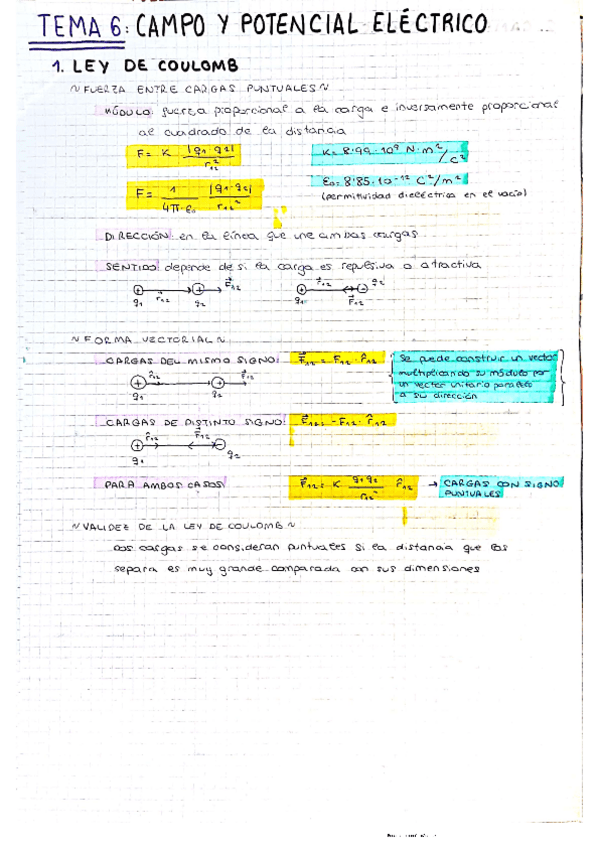 TEMA 6: CAMPO Y POTENCIAL ELÉCTRICO
1. LEY DE COULOMB
~FUERZA ENTRE CARGAS PUNTUALES~
MÓDULO: fuerza proporcional a la carga e inversamente proporcional
al cuadrado de la distancia
F = K |q1·q2| / r12²
K = 8.99·10⁹ N·m²/C²
F = 1 / 4π·ε0 |q1·q2| / r12²
ε0 = 8'85·10⁻¹² C²/m²
(permitividad dieléctrica en el vacío)
DIRECCIÓN: en la línea que une ambas cargas
SENTIDO: depende de si la carga es repulsiva o atractiva
+ r12 + F12
q1 q2
+ r12 - q2
q1 F12
~FORMA VECTORIAL~
CARGAS DEL MISMO SIGNO: F12 = F12 · r̂12
Se puede construir un vector
multiplicando su módulo por
un vector unitario paralelo
a su dirección
r̂12 F12
+ +
q1 q2
CARGAS DE DISTINTO SIGNO: F12 = -F12 · r̂12
r̂12 F12
+ -
q1 q2
PARA AMBOS CASOS F12 = K q1·q2 / r12² r̂12 → CARGAS CON SIGNO
PUNTUALES
~VALIDEZ DE LA LEY DE COULOMB~
Las cargas se consideran puntuales si la distancia que las
separa es muy grande comparada con sus dimensiones